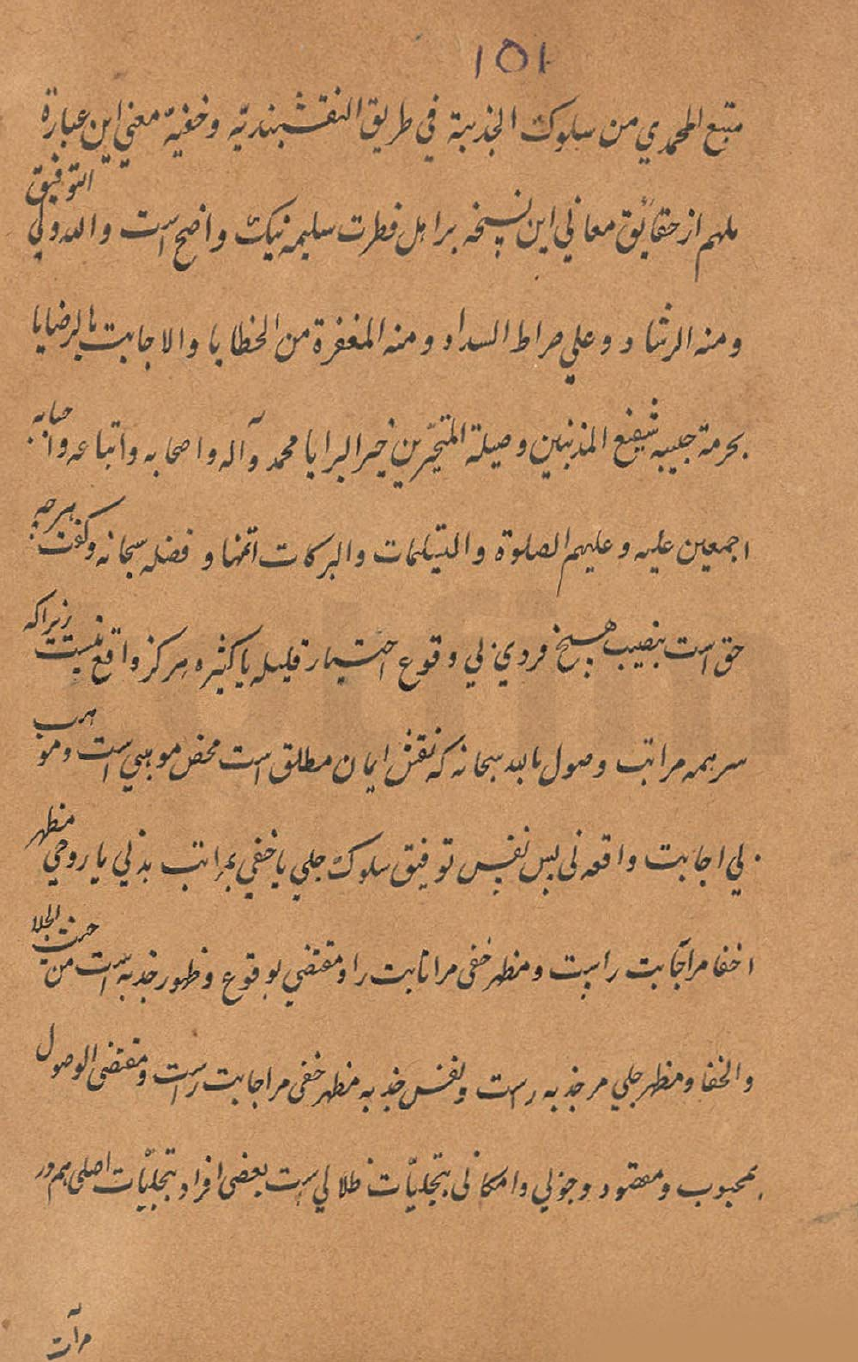 ۱۵۱
متبع المحمدي من سلوك الجذبة في طريق النقشبنديه و خفيه معني اين عبارة
ملهم از حقايق معاني اين نسخه بر اهل فطرت سليمه نيك واضح است والله ولي التوفيق
ومنه الرشاد وعلي صراط السداد ومنه المغفرة من الخطايا والاجابت بالرضايا
بحرمة حبيبه شفيع المذنبين وصيلة المتحيرين خير البرايا محمد وآله واصحابه واتباعه واحبابه
اجمعين عليه وعليهم الصلوة والتسليمات والبركات اتمها و فضله سبحانه و كفت هرچه
حق است بنصيب هيچ فردي ني وقوع اختيار قليله يا كثيره هركز واقع نيست زيرا كه
سر همه مراتب وصول بالله سبحانه كه نقش ايمان مطلق است محض موهبي است وموهب
ني اجابت واقعه ني بس نفس توفيق سلوك جلي يا خفي بمراتب بذلي يا روحي مظهر
اخفا مر اجابت راست ومظهر خفي مر انابت را ومقتضي بوقوع و ظهور جذبه است من حيث الجلا
والخفا ومظهر جلي مر جذبه راست و نفس جذبه مظهر خفي مر اجابت راست ومقتضي الوصول
بمحبوب ومقصود وجوبي وامكاني بتجليّات ظلالي است بعضي افراد بتجليّات اصلي هم در
مرآت